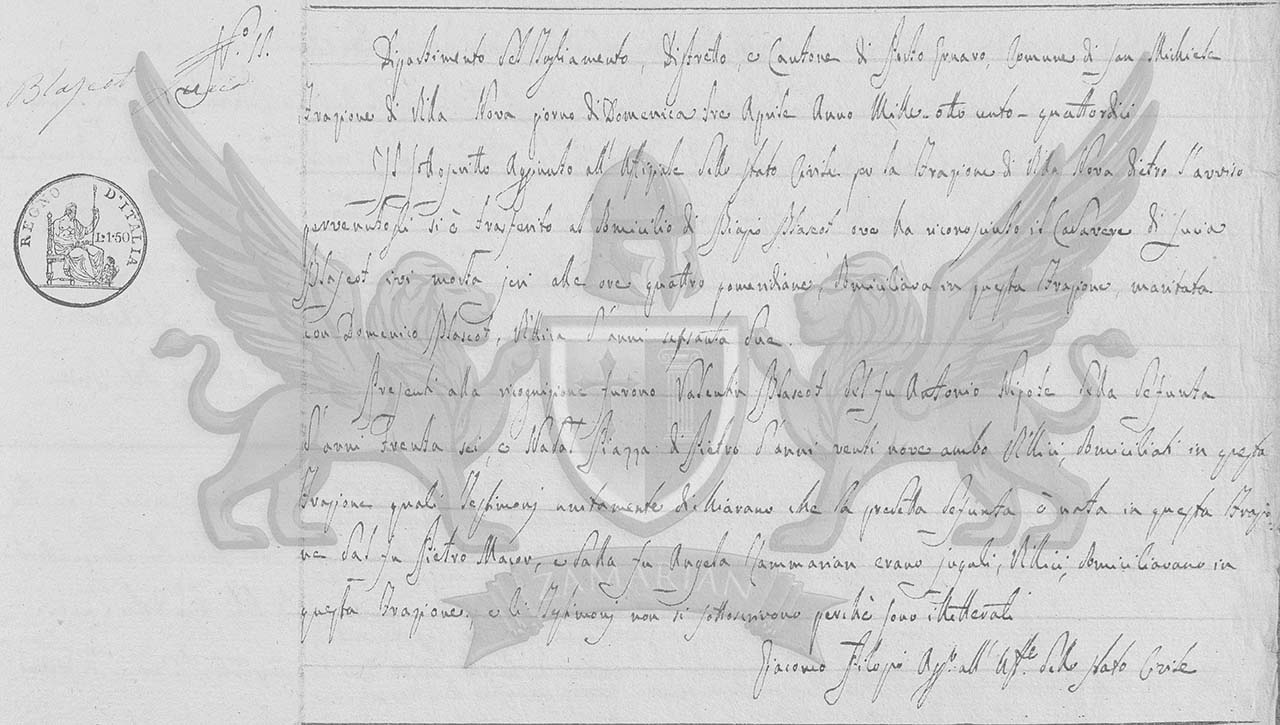 N.º 11.
Blascot Lucia
REGNO D'ITALIA
L.1.50
Dipartimento del Tagliamento, Distretto, e Cantone di Porto Gruaro, Comune di San Michiele
Frazione di Villa Nova giorno di Domenica tre Aprile Anno Mille-otto cento-quattordici
Il sottoscritto Aggiunto all' Uffiziale dello stato Civile per la Frazione di Villa Nova dietro l'avviso
pervenutogli si è trasferito al Domicilio di Biagio Blascot ove ha riconosciuto il Cadavere di Lucia
Blascot ivi morta jeri alle ore quattro pomeridiane, Domiciliava in questa Frazione, maritata
con Domenico Blascot, Villica d'anni sessanta due.
Presenti alla ricognizione furono Valentin Blascot del fu Antonio Nipote della defunta
d'anni Trenta sei, e Nadal Piazza di Pietro d'anni venti nove ambo Villici, Domiciliati in questa
Frazione quali Testimonj unitamente dichiarano che la predetta defunta è nata in questa Frazio-
ne dal fu Pietro Macor, e dalla fu Angela Zammarian erano jugali, Villici, Domiciliavano in
questa Frazione. e li Testimonj non si sottoscrivono perchè sono illetterati
Giacomo Filippi Agg.to all' Uff.le dello stato Civile
ZAMARIAN